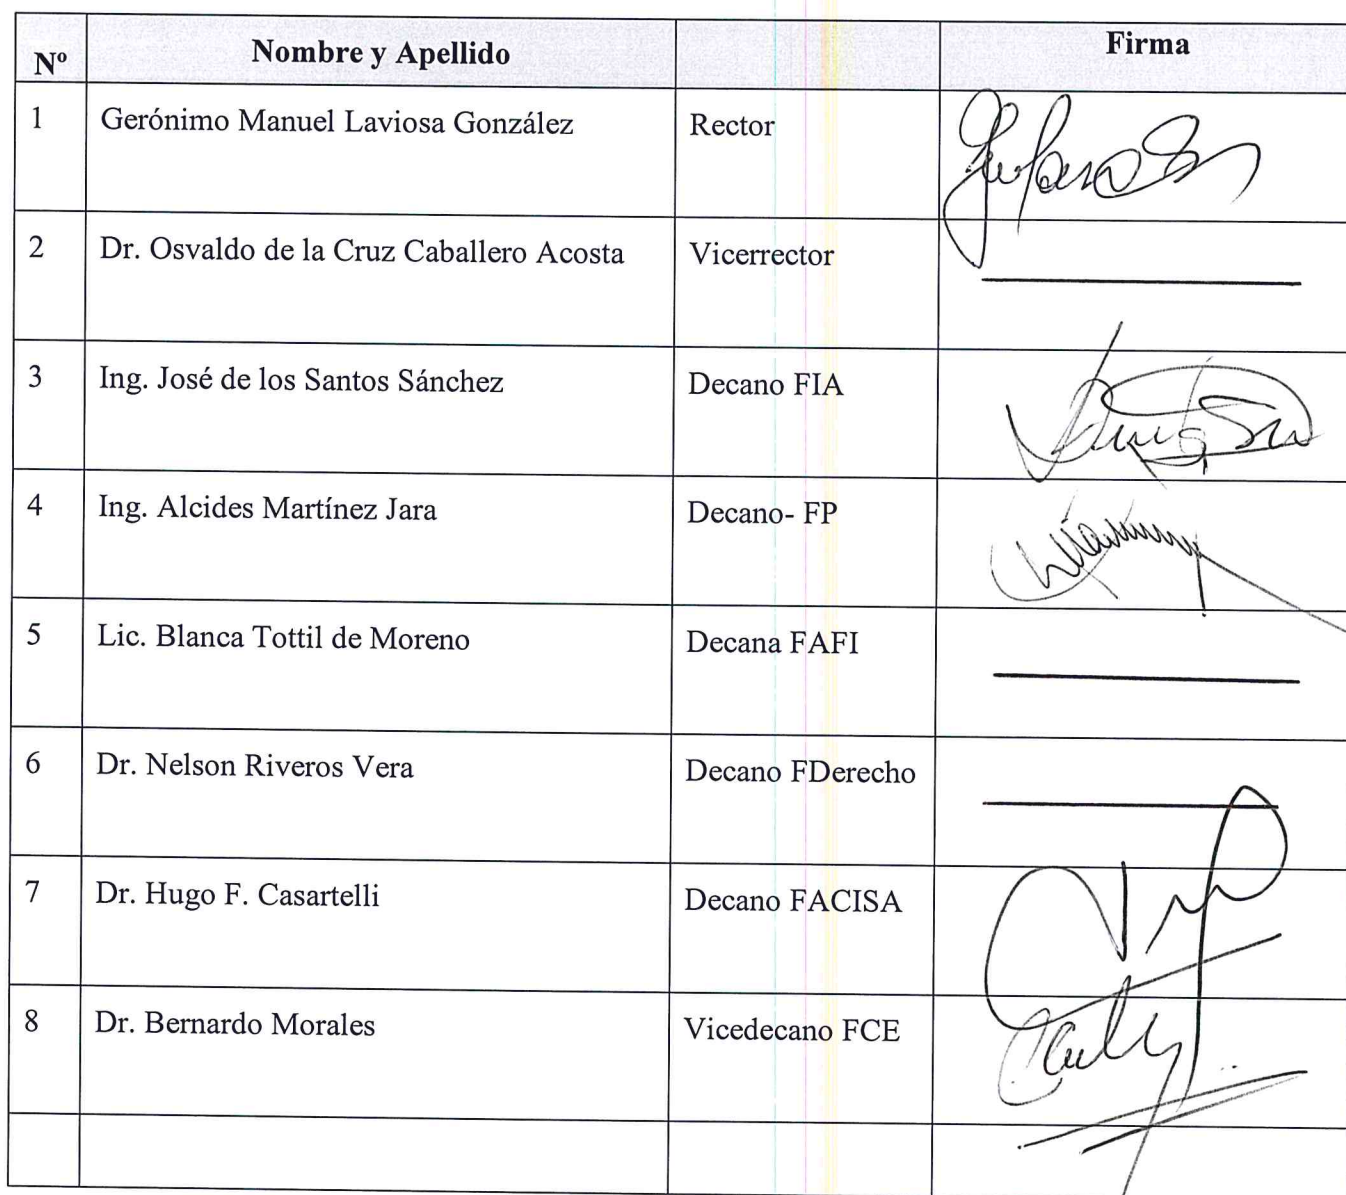 Nº Nombre y Apellido Firma
1 Gerónimo Manuel Laviosa González Rector
2 Dr. Osvaldo de la Cruz Caballero Acosta Vicerrector
3 Ing. José de los Santos Sánchez Decano FIA
4 Ing. Alcides Martínez Jara Decano- FP
5 Lic. Blanca Tottil de Moreno Decana FAFI
6 Dr. Nelson Riveros Vera Decano FDerecho
7 Dr. Hugo F. Casartelli Decano FACISA
8 Dr. Bernardo Morales Vicedecano FCE